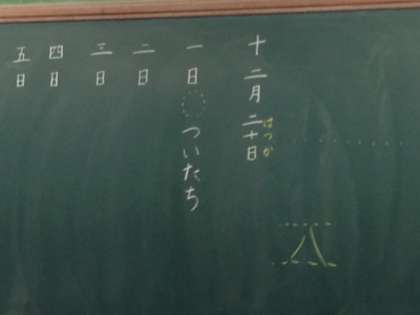 十二月二十日
はつか
一日 ついたち
二日
三日
四日
五日
八